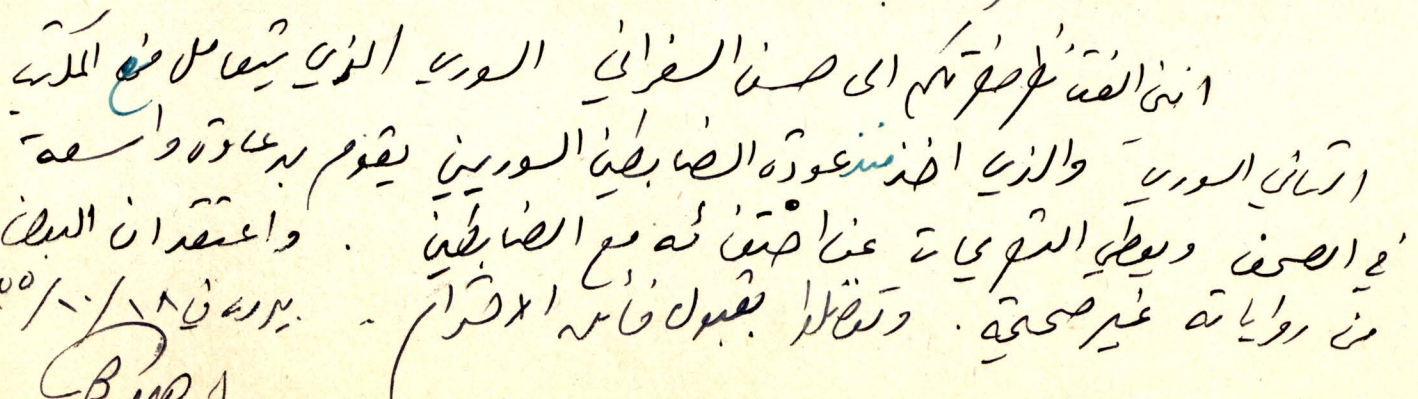 انني الفت نظر حضرتكم الى حسن السفراني السوري الذي يتعامل مع المكتب
الثاني السوري والذي اخذ منذ عودة الضابطين السوريين يقوم بدعاوة واسعة
في الصحف ويعطي التصريحات عن اختفائه مع الضابطين . واعتقد ان البعض
من رواياته غير صحيحة . وتفضلوا بقبول فائق الاحترام . بيروت في ١٨/١٠/٥٥